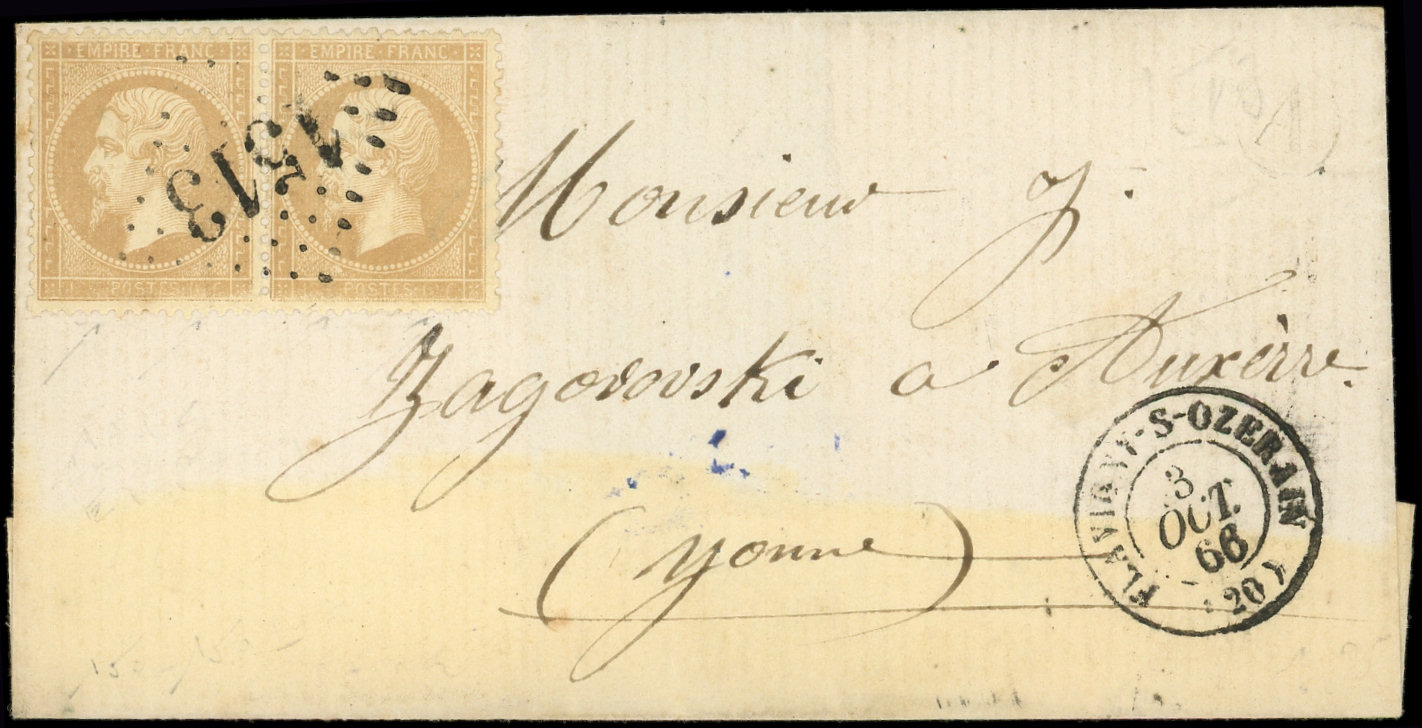 EMPIRE FRANC
EMPIRE FRANC
POSTES
POSTES
1513
Monsieur J.
Zagorovski a Auxèrre.
(Yonne)
FLAVIGNY-S-OZERAIN
3
OCT.
66
(20)